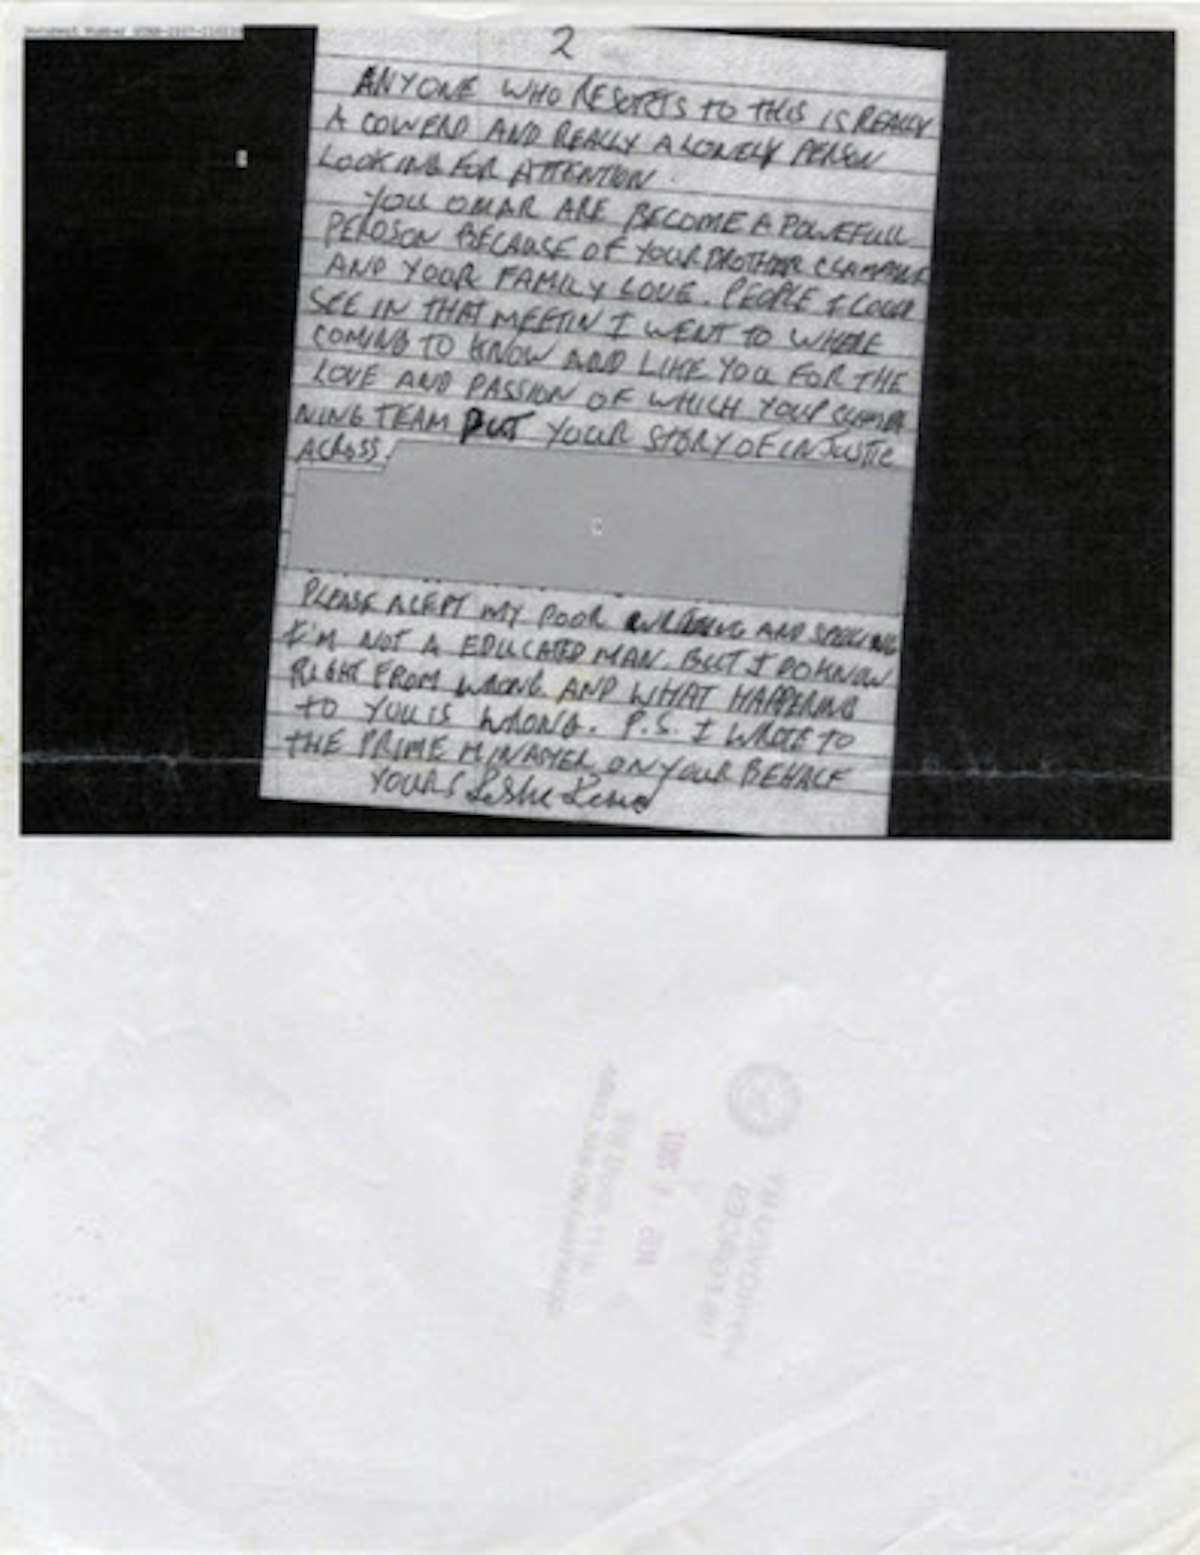 Document Number
2
ANYONE WHO RESORTS TO THIS IS REALLY
A COWERD AND REALLY A LONELY PERSON
LOOKING FOR ATTENTION.
YOU OMAR ARE BECOME A POWEFULL
PEROSON BECAUSE OF YOUR BROTHER
AND YOUR FAMILY LOVE. PEOPLE I COULD
SEE IN THAT MEETIN I WENT TO WHERE
COMING TO KNOW AND LIKE YOU FOR THE
LOVE AND PASSION OF WHICH YOUR
NING TEAM PUT YOUR STORY OF INJUSTIC
ACROSS.
PLEASE ACEPT MY POOR WRITING AND SPELLING
I'M NOT A EDUCATED MAN. BUT I DO KNOW
RIGHT FROM WRONG AND WHAT HAPPENING
TO YOU IS WRONG. P.S. I WROTE TO
THE PRIME MINASTER ON YOUR BEHALF
YOURS Leslie